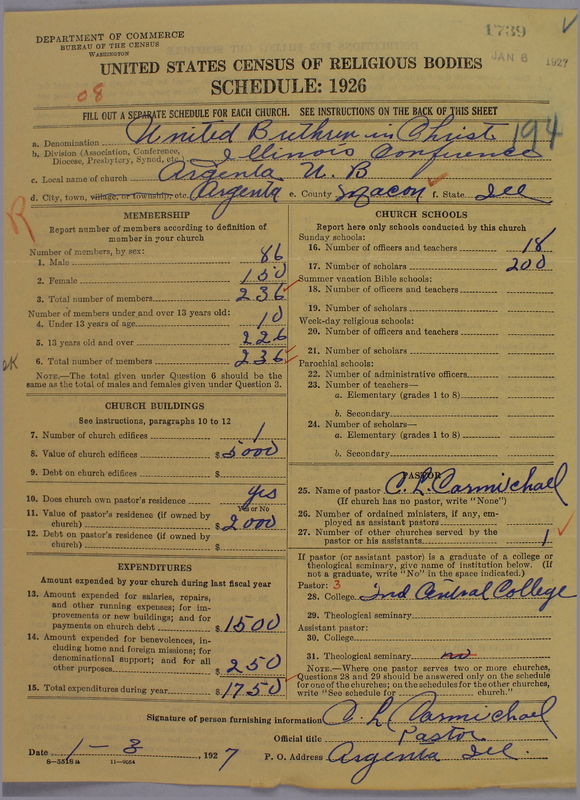 DEPARTMENT OF COMMERCE
BUREAU OF THE CENSUS
WASHINGTON
1739
JAN 8 1927
UNITED STATES CENSUS OF RELIGIOUS BODIES
SCHEDULE: 1926
08
FILL OUT A SEPARATE SCHEDULE FOR EACH CHURCH. SEE INSTRUCTIONS ON THE BACK OF THIS SHEET
194
a. Denomination United Brethren in Christ
b. Division (Association, Conference, Diocese, Presbytery, Synod, etc. Illinois Conference
c. Local name of church Argenta U. B
d. City, town, village, or township, etc. Argenta e. County Macon f. State Ill
R
MEMBERSHIP
Report number of members according to definition of
member in your church
Number of members, by sex:
1. Male 86
2. Female 150
3. Total number of members 236
Number of members under and over 13 years old:
4. Under 13 years of age 10
5. 13 years old and over 226
6. Total number of members 236
NOTE.—The total given under Question 6 should be the
same as the total of males and females given under Question 3.
CHURCH BUILDINGS
See instructions, paragraphs 10 to 12
7. Number of church edifices 1
8. Value of church edifices $ 5000
9. Debt on church edifices $
10. Does church own pastor's residence yes
Yes or No
11. Value of pastor's residence (if owned by
church) $ 2000
12. Debt on pastor's residence (if owned by
church) $
EXPENDITURES
Amount expended by your church during last fiscal year
13. Amount expended for salaries, repairs,
and other running expenses; for im-
provements or new buildings; and for
payments on church debt $ 1500
14. Amount expended for benevolences, in-
cluding home and foreign missions; for
denominational support; and for all
other purposes $ 250
15. Total expenditures during year $ 1750
CHURCH SCHOOLS
Report here only schools conducted by this church
Sunday schools:
16. Number of officers and teachers 18
17. Number of scholars 200
Summer vacation Bible schools:
18. Number of officers and teachers
19. Number of scholars
Week-day religious schools:
20. Number of officers and teachers
21. Number of scholars
Parochial schools:
22. Number of administrative officers
23. Number of teachers—
a. Elementary (grades 1 to 8)
b. Secondary
24. Number of scholars—
a. Elementary (grades 1 to 8)
b. Secondary
PASTOR
25. Name of pastor C. L. Carmichael
(If church has no pastor, write "None")
26. Number of ordained ministers, if any, em-
ployed as assistant pastors
27. Number of other churches served by the
pastor or his assistants 1
If pastor (or assistant pastor) is a graduate of a college or
theological seminary, give name of institution below. (If
not a graduate, write "No" in the space indicated.)
Pastor: 3
28. College Ind Central College
29. Theological seminary
Assistant pastor:
30. College
31. Theological seminary no
NOTE.—Where one pastor serves two or more churches,
Questions 28 and 29 should be answered only on the schedule
for one of the churches; on the schedules for the other churches,
write "See schedule for church."
Signature of person furnishing information C. L. Carmichael
Official title Pastor
Date 1 - 3, 1927 P. O. Address Argenta Ill.
8—5518a 11—9054